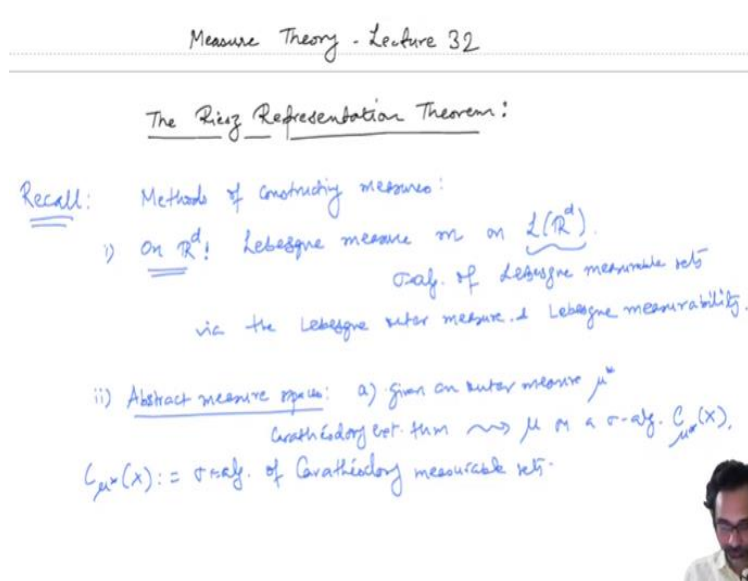 Measure Theory - Lecture 32
The Riesz Representation Theorem:
Recall: Methods of constructing measures:
i) On ℝᵈ: Lebesgue measure m on ℒ(ℝᵈ).
σ-alg. of Lebesgue measurable sets
via the Lebesgue outer measure & Lebesgue measurability.
ii) Abstract measure spaces: a) given an outer measure μ*
Carathéodory ext. thm ⇝ μ on a σ-alg. C_μ*(X).
C_μ*(X) := σ-alg. of Carathéodory measurable sets.